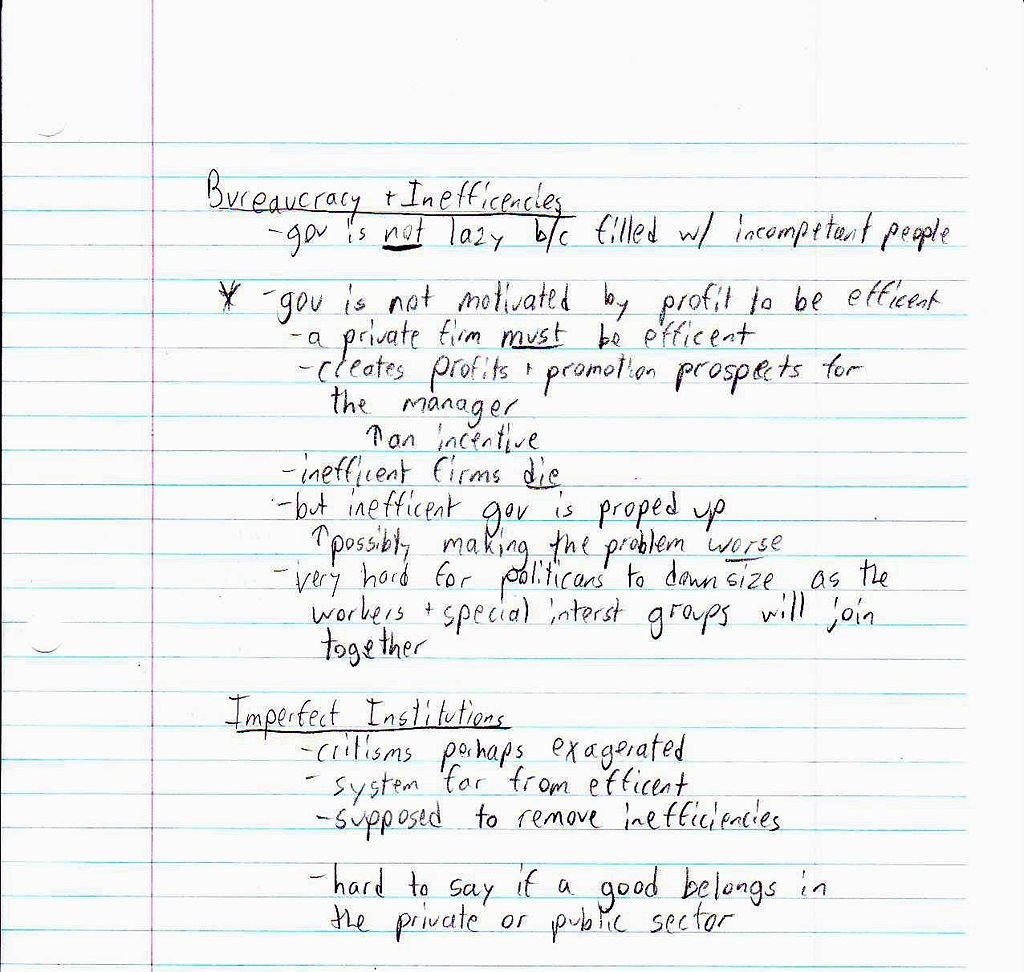 Bureaucracy + Inefficencies
- gov is not lazy b/c filled w/ incompetant people
* - gov is not motivated by profit to be efficent
- a private firm must be efficent
- creates profits + promotion prospects for
the manager
↑ an incentive
- inefficent firms die
- but inefficent gov is proped up
↑ possibly making the problem worse
- very hard for politicans to downsize as the
workers + special interst groups will join
together
Imperfect Institutions
- critisms perhaps exagerated
- system far from efficent
- supposed to remove inefficiencies
- hard to say if a good belongs in
the private or public sector